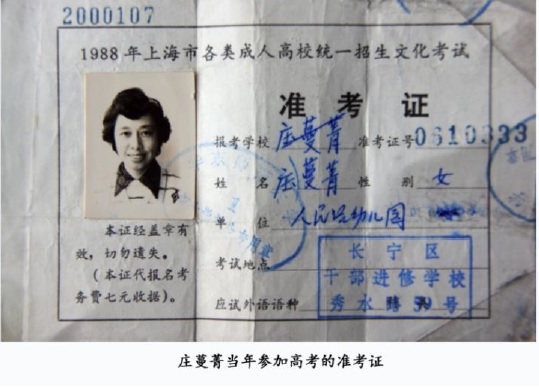 2000107
1988年上海市各类成人高校统一招生文化考试
准考证
报考学校 庄蔓菁 准考证号 0610333
姓名 庄蔓菁 性别 女
单位 人民公幼儿园
考试地点
应试外语语种
长宁区
干部进修学校
秀水路50号
本证经盖章有
效,切勿遗失。
(本证代报名考
务费七元收据)。
庄蔓菁当年参加高考的准考证